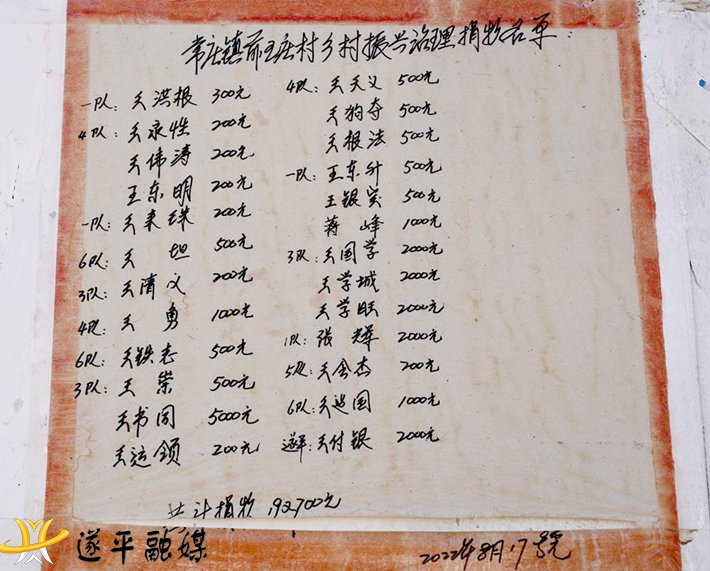 常庄镇前王庄村乡村振兴治理捐物名单：
一队：王洪根 300元
4队：王永性 200元
王伟涛 200元
王东明 200元
一队：王来珠 200元
6队：王坦 500元
3队：王清义 200元
4队：王勇 1000元
6队：王铁志 500元
3队：王崇 500元
王书同 5000元
王运领 200元
4队：王天义 500元
王狗夺 500元
王根法 500元
一队：王东升 500元
王银宾 500元
蒋峰 1000元
3队：王国学 2000元
王学城 2000元
王学旺 2000元
1队：张辉 2000元
5队：王金杰 200元
6队：王建国 1000元
遂平：王付银 2000元
共计捐物 192700元
2022年8月17号
遂平融媒